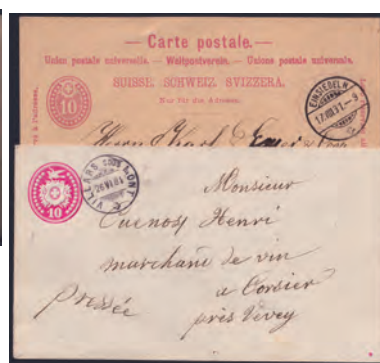 — Carte postale. —
Union postale universelle. — Weltpostverein. — Unione postale universale.
SUISSE. SCHWEIZ. SVIZZERA.
Nur für die Adresse.
10
EINSIEDELN
Herrn Karl
10
VILLARS SOUS MONT
Monsieur
Cuenoz Henri
marchand de vin
a Corsier
près Vevey
Pressée